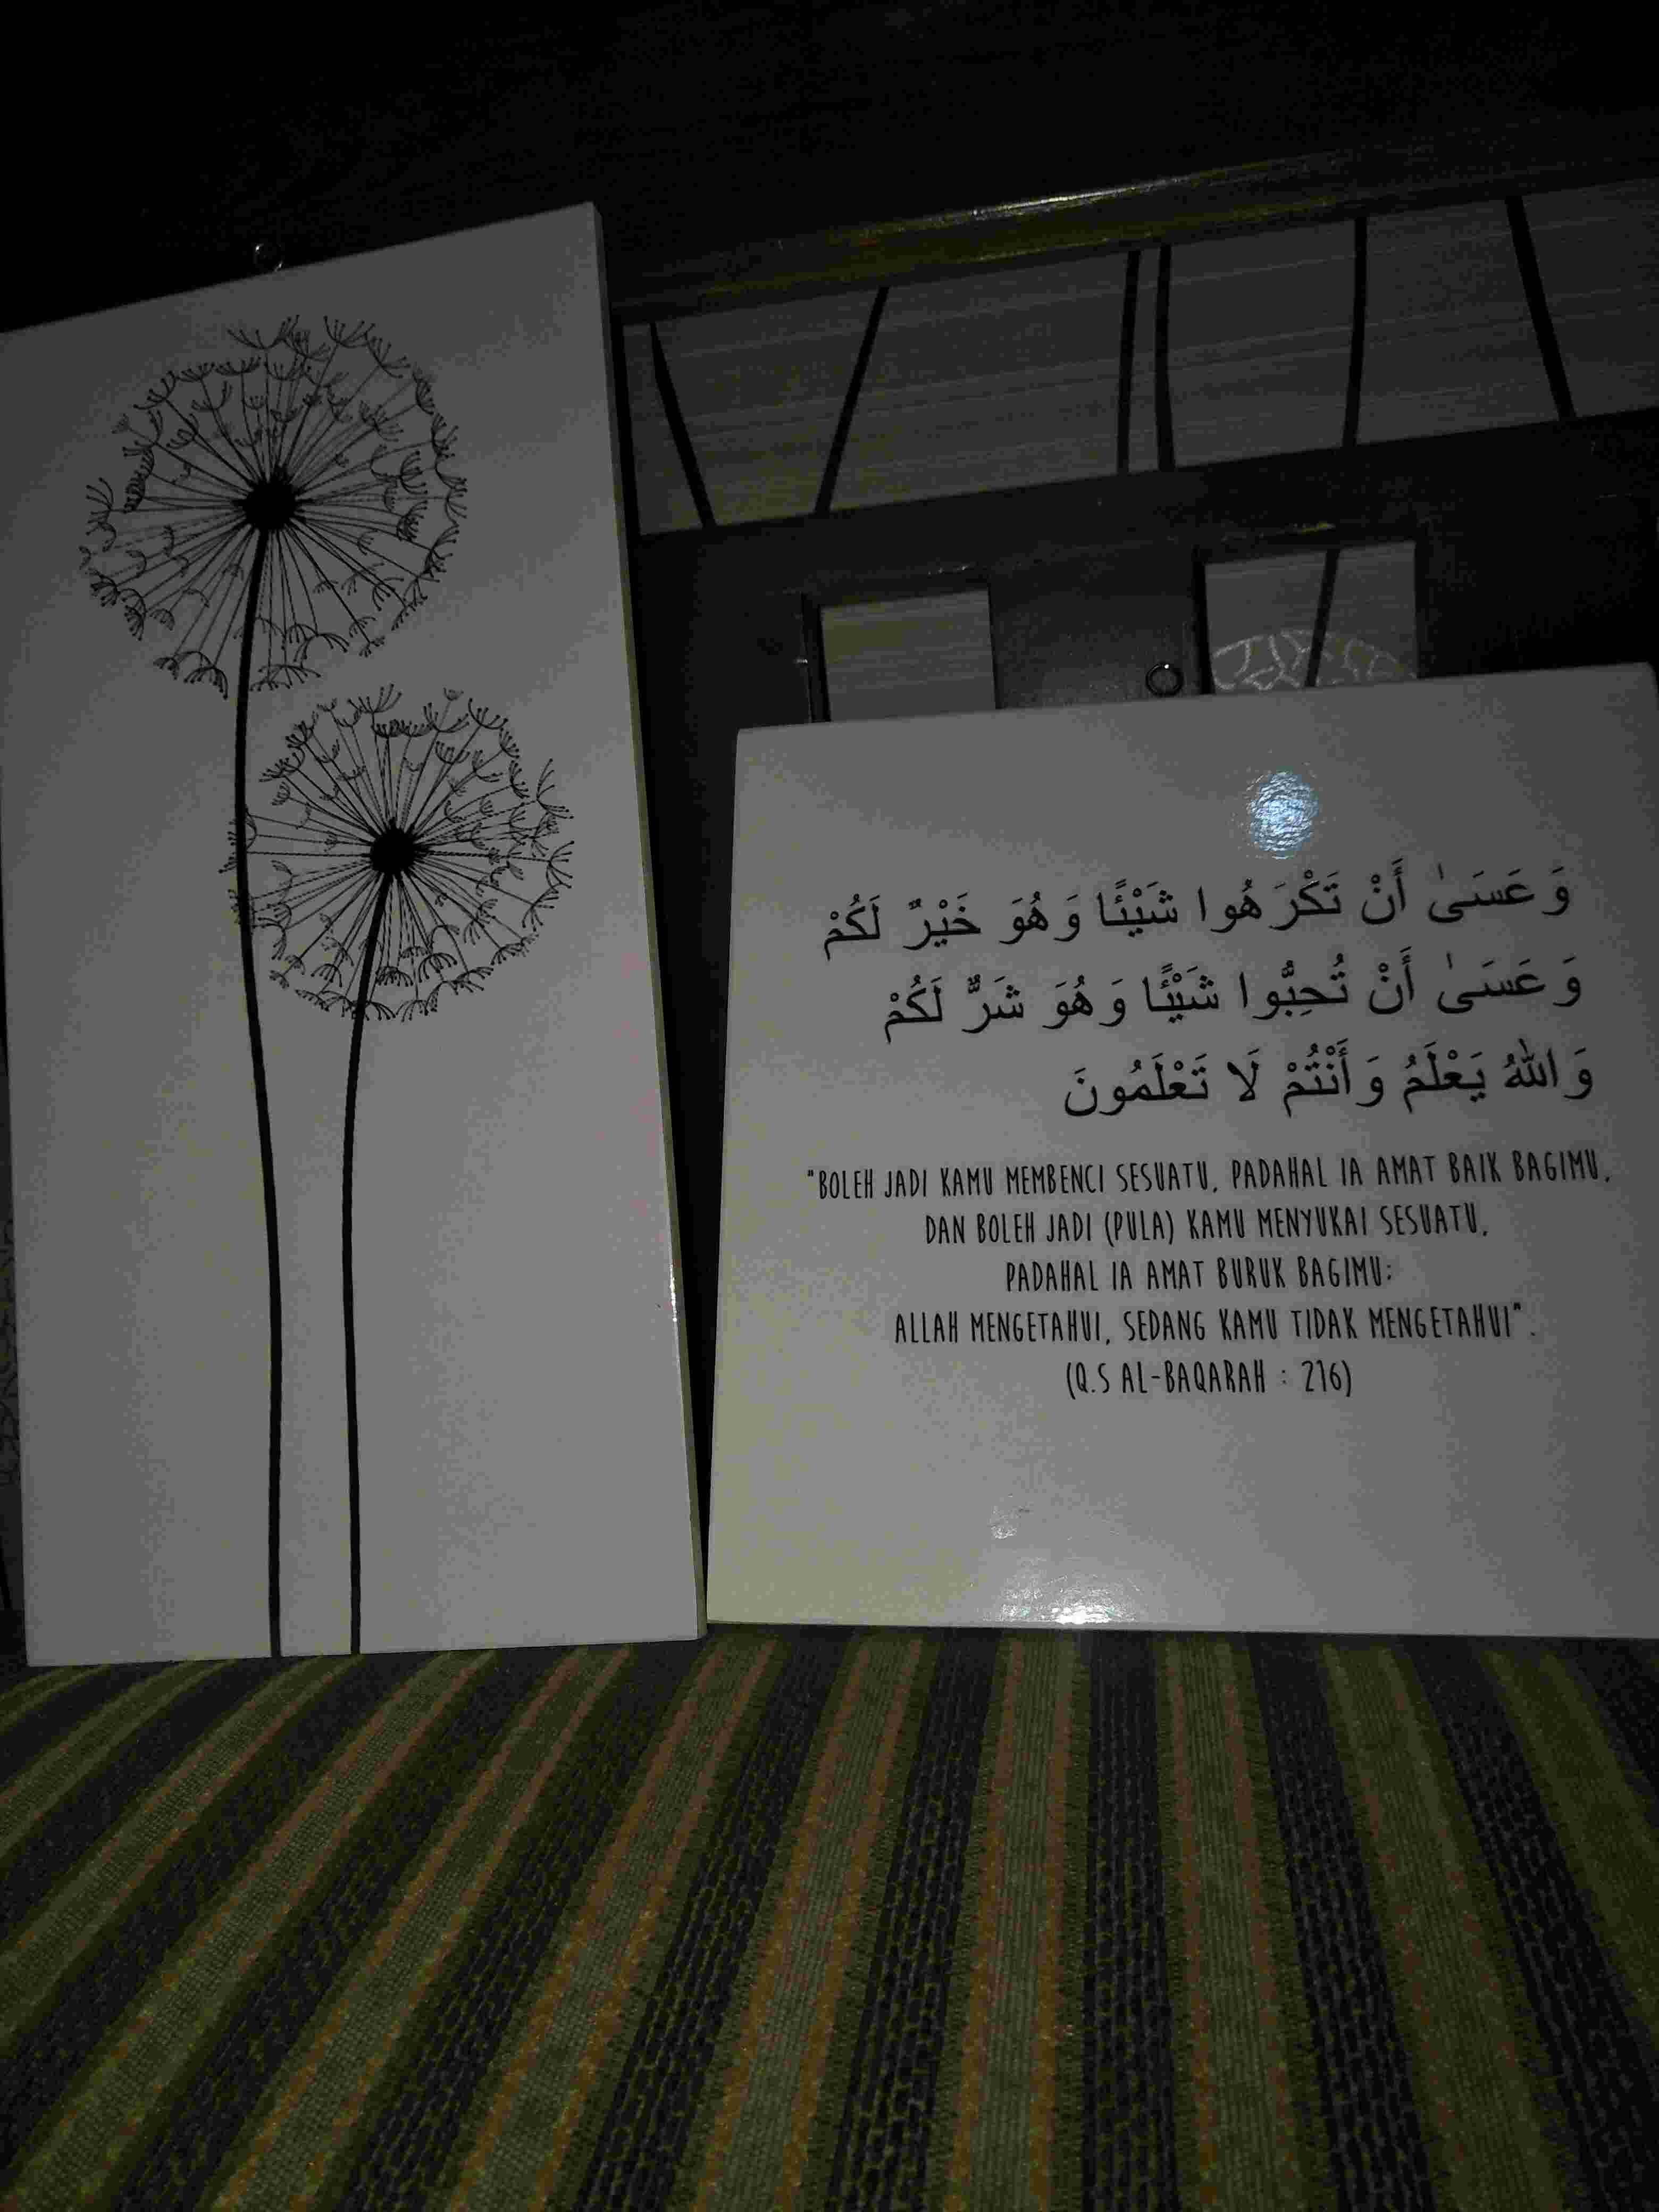 وَعَسَىٰ أَنْ تَكْرَهُوا شَيْئًا وَهُوَ خَيْرٌ لَكُمْ
وَعَسَىٰ أَنْ تُحِبُّوا شَيْئًا وَهُوَ شَرٌّ لَكُمْ
وَاللّٰهُ يَعْلَمُ وَأَنْتُمْ لَا تَعْلَمُونَ
"BOLEH JADI KAMU MEMBENCI SESUATU, PADAHAL IA AMAT BAIK BAGIMU,
DAN BOLEH JADI (PULA) KAMU MENYUKAI SESUATU,
PADAHAL IA AMAT BURUK BAGIMU;
ALLAH MENGETAHUI, SEDANG KAMU TIDAK MENGETAHUI".
(Q.S AL-BAQARAH : 216)